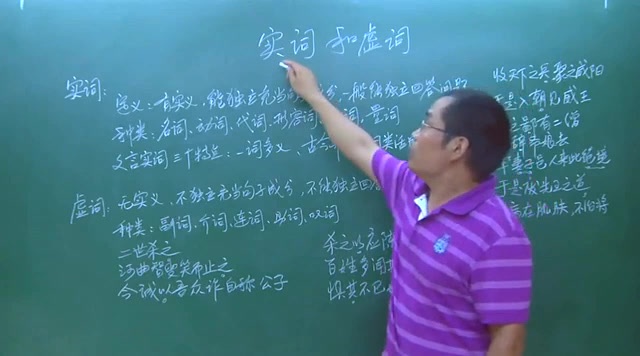 实词和虚词
实词:
定义:有实义,能独立充当句子成分,一般能独立回答问题
种类:名词、动词、代词、形容词、数词、量词
文言实词三个特点:一词多义、古今
虚词:
无实义,不独立充当句子成分,不能独立回
种类:副词、介词、连词、助词、叹词
二世杀之
河曲智叟笑而止之
今诚以吾众诈自称公子
杀之以应陈
百姓多闻
惧其不已
收天下之兵聚之咸阳
于是入朝见威王
有二僧
于是
在肌肤,不治将